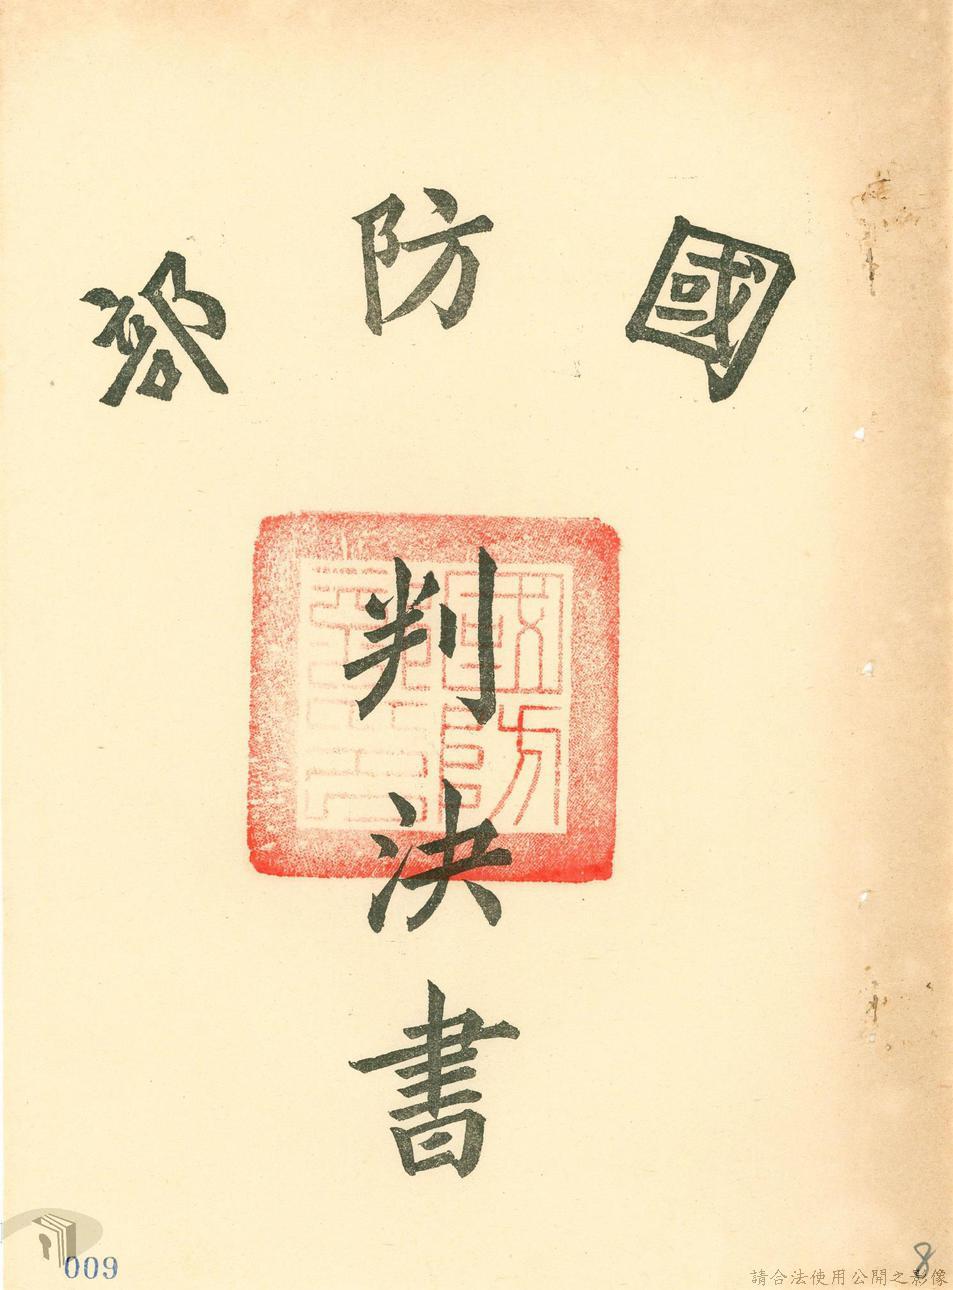 國防部
判決書
國防
009
8
請合法使用公開之影像